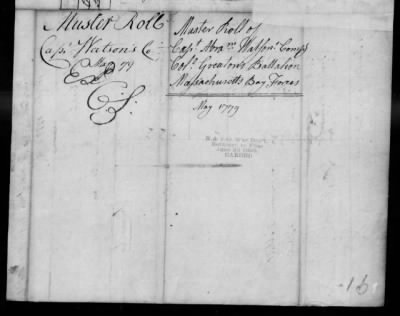 Muster Roll
Capt. Watson's Co
May 79
Muster Roll of
Capt. Abra.m Watson's Comp.y
Col.o Greaton's Battalion
Massachusetts Bay Forces
May 1779
CARDED
16